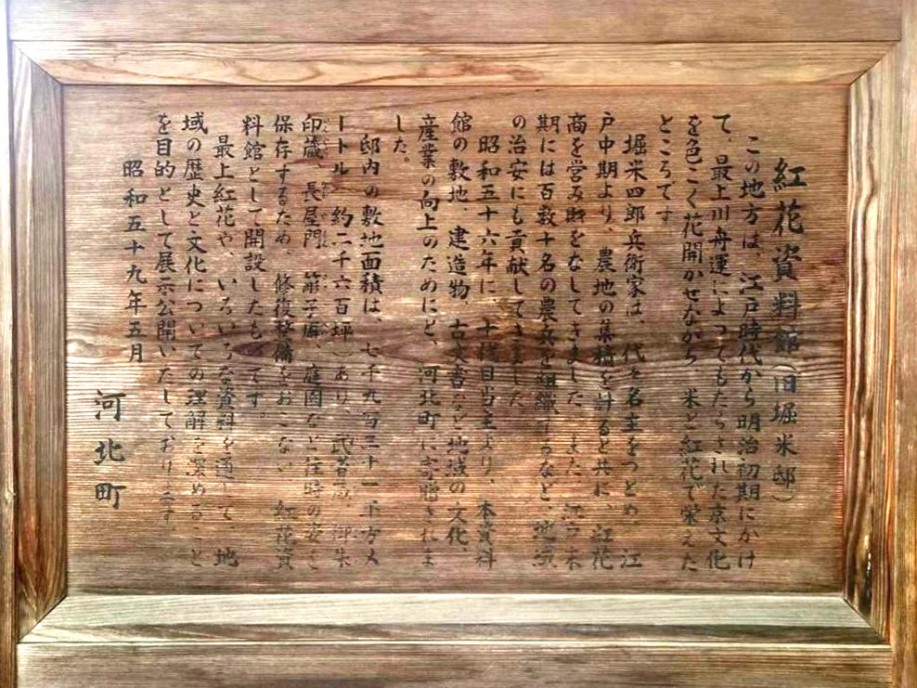 紅花資料館(旧堀米邸)
この地方は、江戸時代から明治初期にかけ
て、最上川舟運によってもたらされた京文化
を色こく花開かせながら 米と紅花で栄えた
ところです
堀米四郎兵衛家は、代々名主をつとめ、江
戸中期より、農地の集積を計ると共に 紅花
商を営み財をなしてきました また、江戸末
期には百数十名の農兵を組織するなど、地域
の治安にも貢献してきました
昭和五十六年に、十代目当主より、本資料
館の敷地、建造物、古文書など地域の文化、
産業の向上のためにと、河北町に寄贈されま
した。
邸内の敷地面積は、七千九百三十一平方メ
ートル(約二千六百坪)あり、武者蔵、御朱
印蔵、長屋門、庭園など往時の姿を
保存するため、修復整備をおこない、紅花資
料館として開設したものです
最上紅花や、いろいろな資料を通して、地
域の歴史と文化についての理解を深めること
を目的として展示公開いたしております。
昭和五十九年五月
河北町